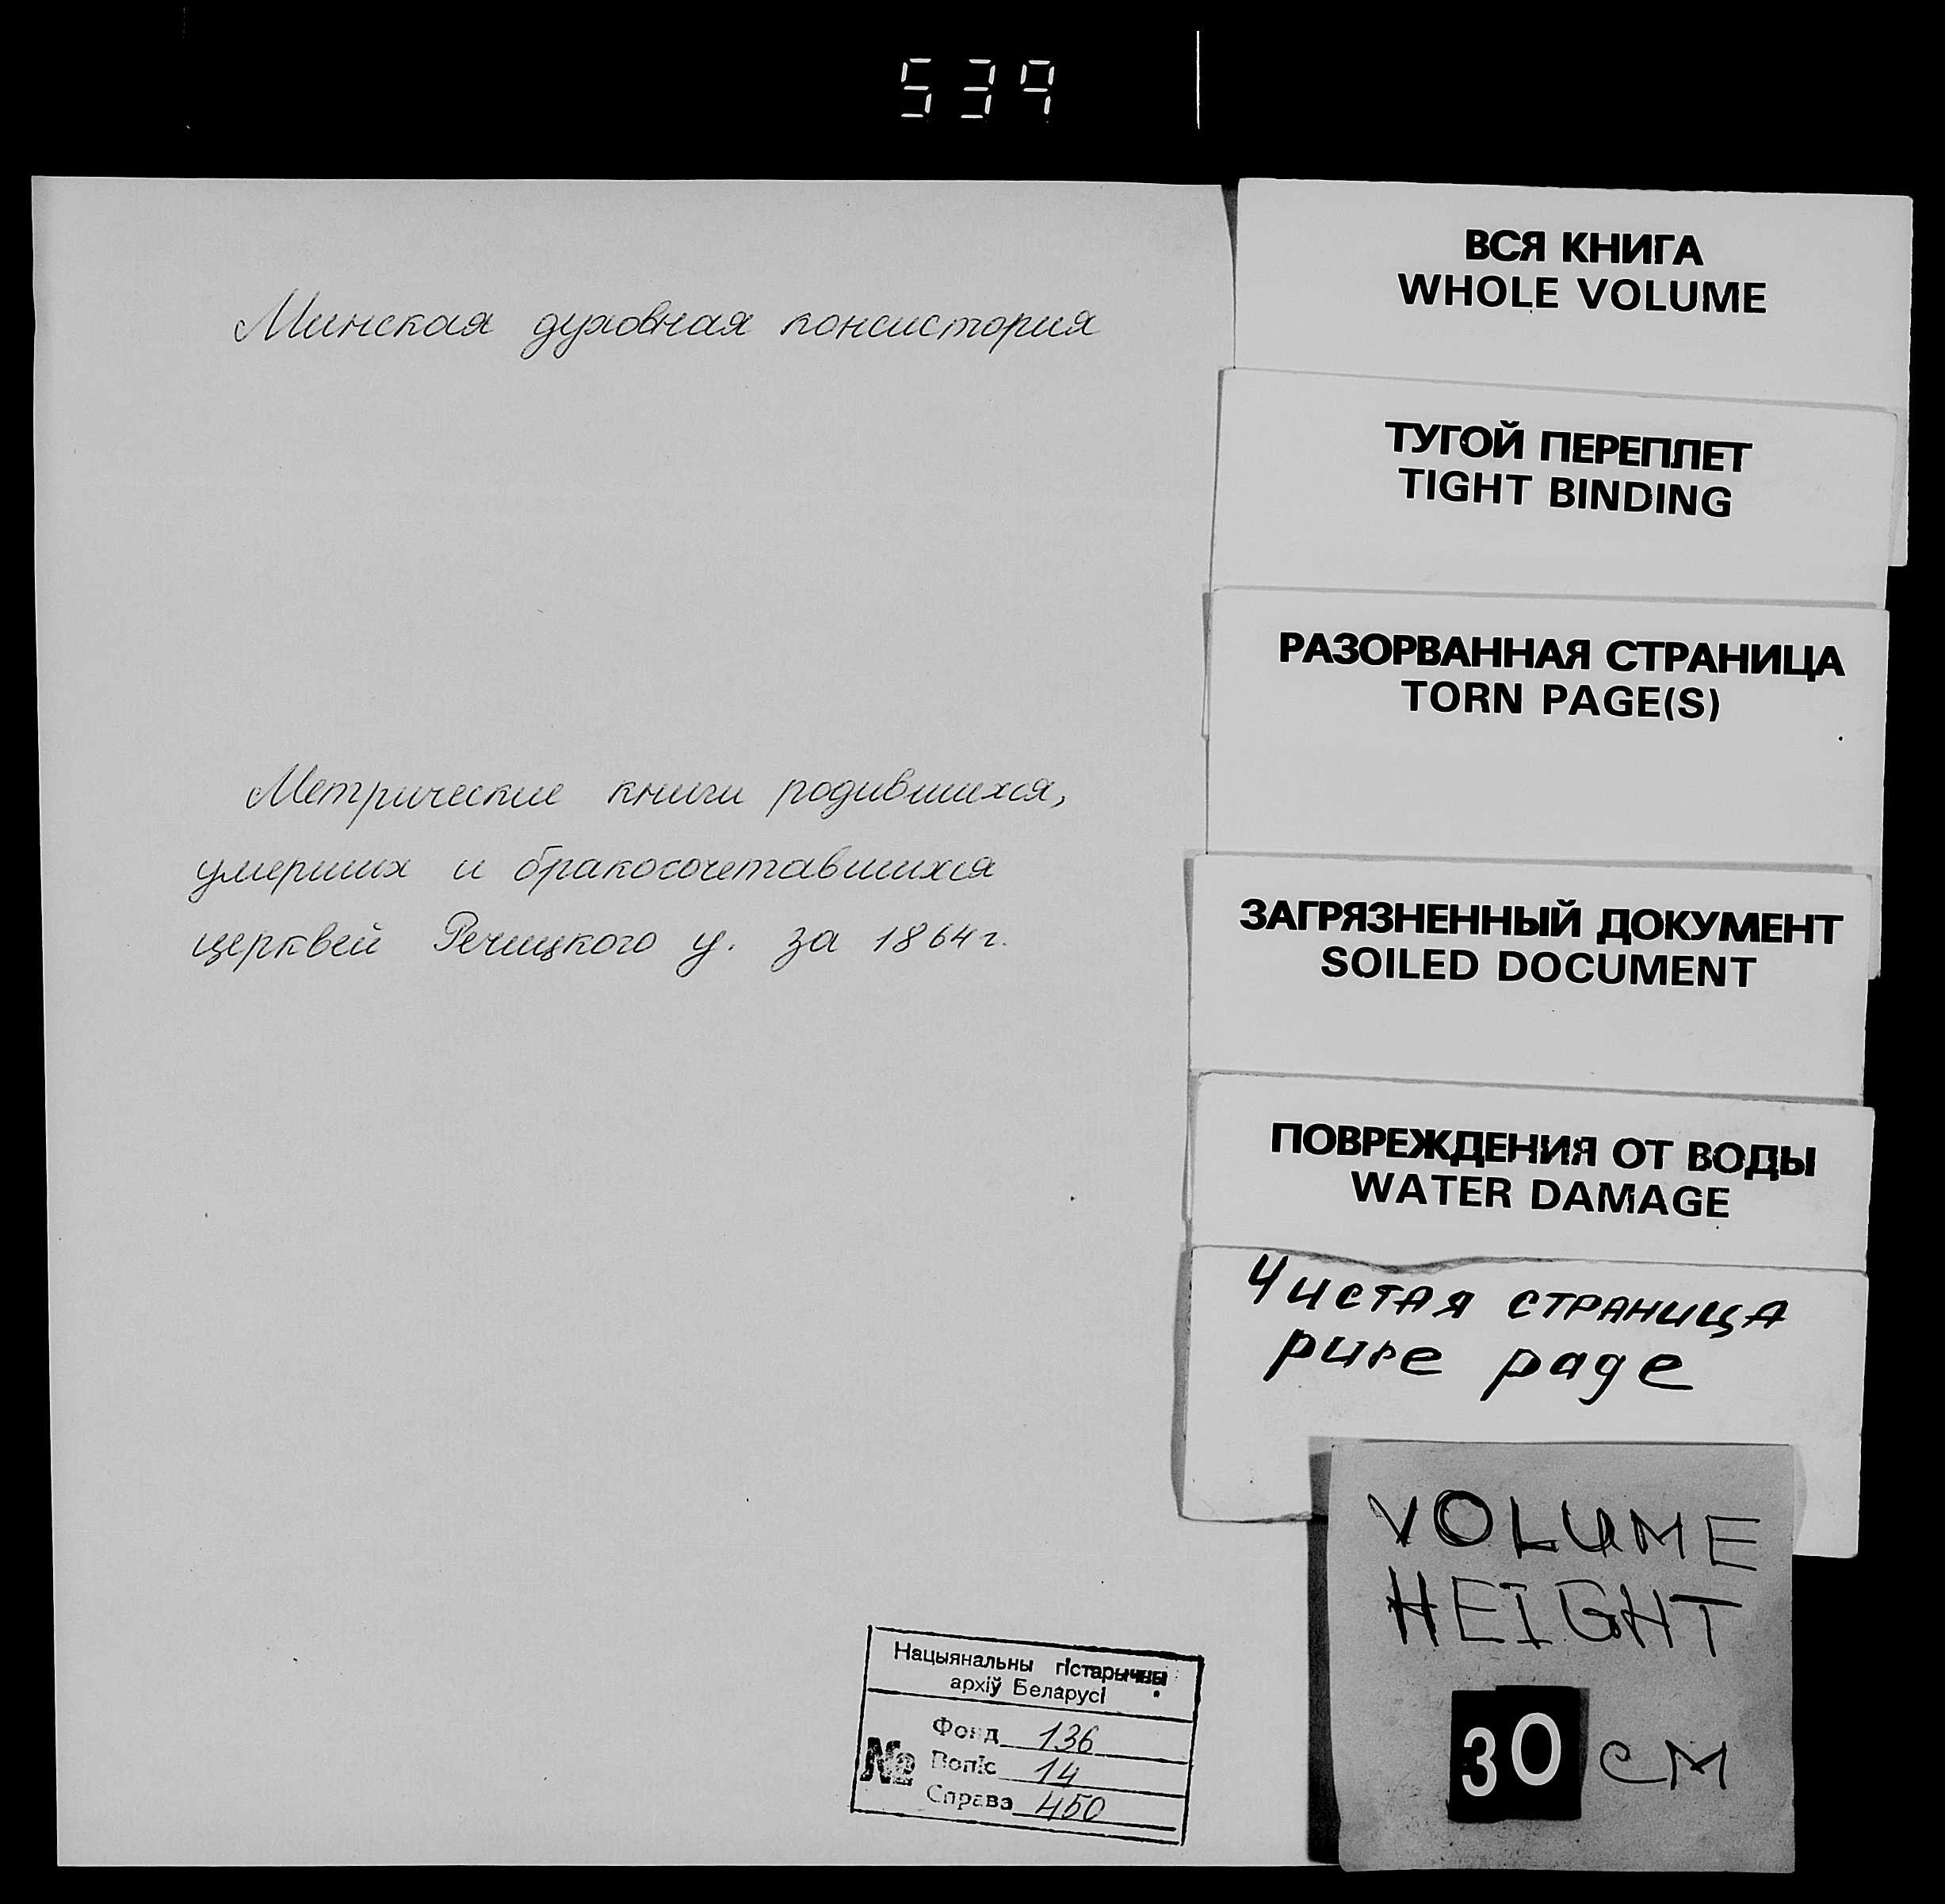 539
Минская духовная консистория
Метрические книги родившихся,
умерших и бракосочетавшихся
церквей Речицкого у. за 1864 г.
Нацыянальны гістарычны
архіў Беларусі
№
Фонд 136
Вопіс 14
Справа 450
ВСЯ КНИГА
WHOLE VOLUME
ТУГОЙ ПЕРЕПЛЕТ
TIGHT BINDING
РАЗОРВАННАЯ СТРАНИЦА
TORN PAGE(S)
ЗАГРЯЗНЕННЫЙ ДОКУМЕНТ
SOILED DOCUMENT
ПОВРЕЖДЕНИЯ ОТ ВОДЫ
WATER DAMAGE
Чистая страница
pure page
VOLUME
HEIGHT
30 CM